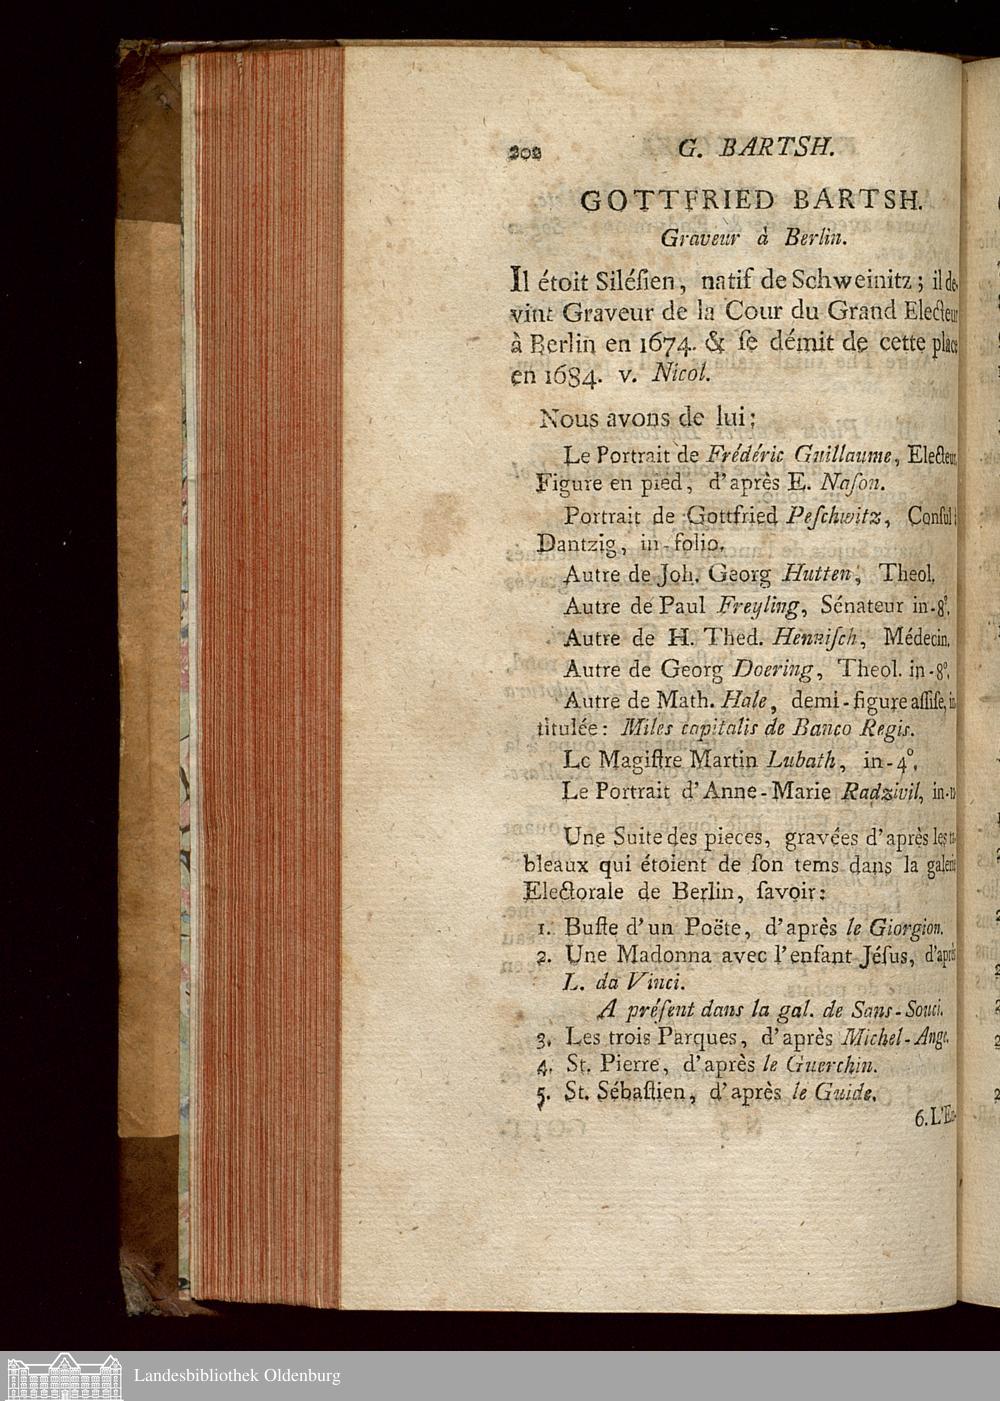 202 G. BARTSH.
GOTTFRIED BARTSH.
Graveur à Berlin.
Il étoit Siléſien, natif de Schweinitz; il de-
vint Graveur de la Cour du Grand Electeur
à Berlin en 1674. & ſe démit de cette place
en 1684. v. Nicol.
Nous avons de lui:
Le Portrait de Frédéric Guillaume, Electeur,
Figure en pied, d'après E. Naſon.
Portrait de Gottfried Peſchwitz, Conſul
Dantzig, in-folio.
Autre de Joh. Georg Hutten, Theol.
Autre de Paul Freyling, Sénateur in-8°.
Autre de H. Thed. Henniſch, Médecin.
Autre de Georg Doering, Theol. in-8°.
Autre de Math. Hale, demi-figure aſſiſe, in-
titulée: Miles capitalis de Banco Regis.
Le Magiſtre Martin Lubath, in-4°.
Le Portrait d'Anne-Marie Radzivil, in-
Une Suite des pieces, gravées d'après les ta-
bleaux qui étoient de ſon tems dans la galerie
Electorale de Berlin, ſavoir:
1. Buſte d'un Poëte, d'après le Giorgion.
2. Une Madonna avec l'enfant Jéſus, d'après
L. da Vinci.
A préſent dans la gal. de Sans-Souci.
3. Les trois Parques, d'après Michel-Ange.
4. St. Pierre, d'après le Guerchin.
5. St. Sébaſtien, d'après le Guide.
6. L'En-
Landesbibliothek Oldenburg